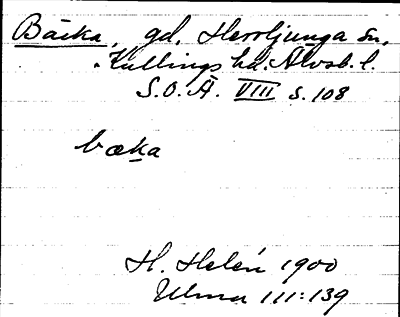 Bäcka, gd. Herrljunga sn,
Kullings hd. Älvsb. l.
S.O.Ä. VIII s. 108
bæka
H. Helén 1900
Ulma 111:139